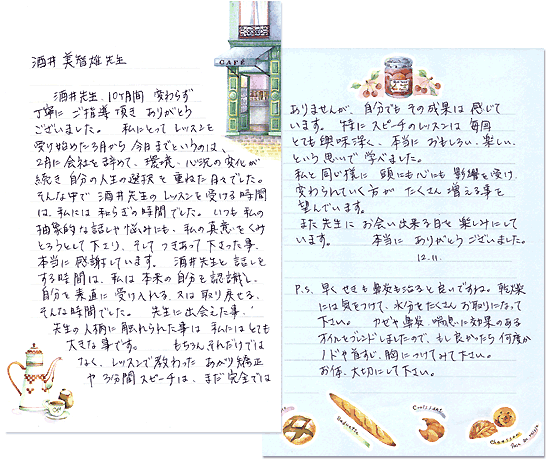 CAFÉ
酒井 美智雄先生
酒井先生、10ヶ月間 変わらず
丁寧に ご指導 頂き ありがとう
ございました。 私にとって レッスンを
受け始めた3月から 今日までというのは、
2月に会社を辞めて、環境、心況の変化が
続き 自分の人生の選択を 重ねた 日々でした。
そんな中で 酒井先生の レッスンを 受ける時間
は、私には 和らぎの時間でした。 いつも 私の
抽象的な話しや 悩みにも、私の真意を くみ
とろうとして 下さり、そして つきあって 下さった事、
本当に 感謝しています。 酒井先生と 話しを
する時間は、私は 本来の自分を 認識し、
自分を 素直に 受け入れる、又は 取り戻せる、
そんな時間でした。 先生に出会えた事、
先生の人柄に 触れられた事は 私には とても
大きな事です。 もちろん それだけでは
なく、レッスンで教わった あがり矯正
や 3分間スピーチは、まだ 完全では
ありませんが、自分でも その成果は 感じて
います。 特に スピーチのレッスンは 毎回
とても 興味深く、本当に おもしろい、楽しい、
という 思いで 学べました。
私と 同じ様に 頭にも心にも 影響を受け、
変わられていく方が たくさん 増える事を
望んでいます。
また先生に お会い出来る日を 楽しみにして
います。 本当に ありがとうございました。
12.11.
P.S. 早く せきも 鼻炎も治ると 良いですね。乾燥
には 気をつけて、水分を たくさん お取りになって
下さい。 カゼや 鼻炎、喘息に効果のある
オイルをブレンドしましたので、もし 良かったら 何度か
ノドや首すじ、胸に つけてみて 下さい。
お体、大切にして 下さい。
Baguette
Croissant
Chausson